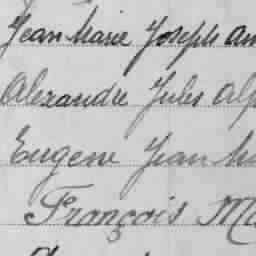 Jean Marie Joseph
Alexandre Jules
Eugene Jean
François